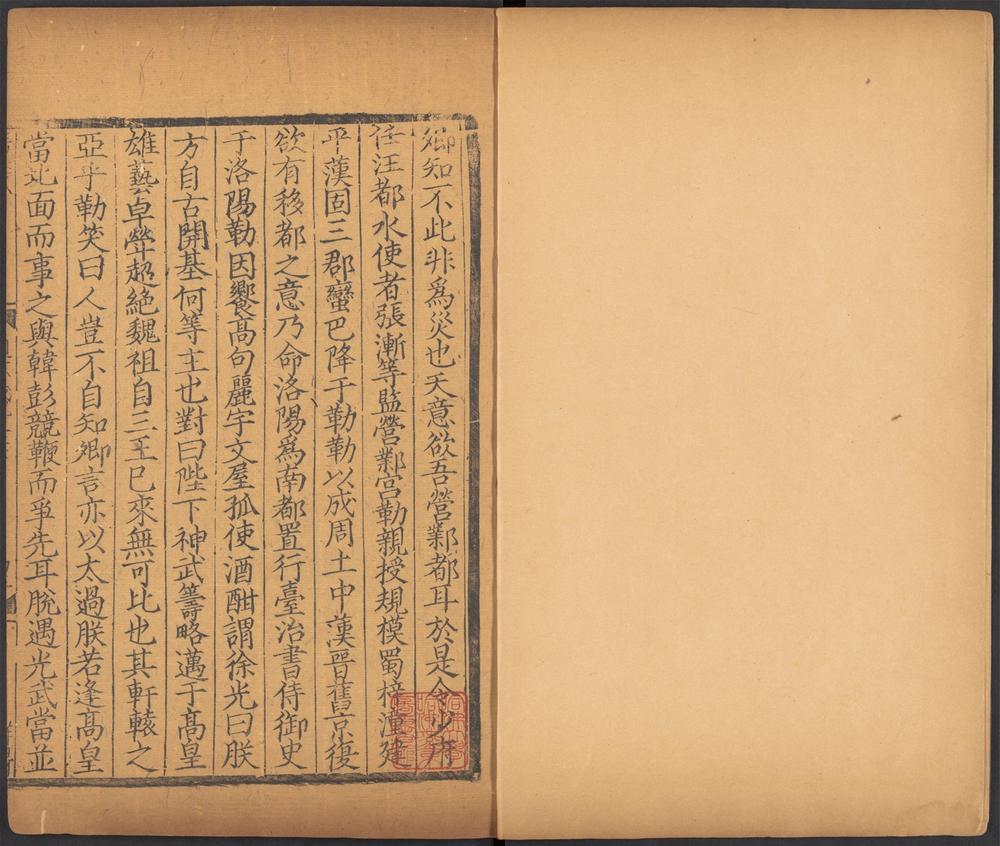 卿知不此非爲災也天意欲吾營鄴都耳於是令少府
任汪都水使者張漸等監營鄴宮勒親授規模蜀梓潼建
平漢固三郡蠻巴降于勒勒以成周土中漢晉舊京復
欲有移都之意乃命洛陽爲南都置行臺治書侍御史
于洛陽勒因饗高句麗宇文屋孤使酒酣謂徐光曰朕
方自古開基何等主也對曰陛下神武籌略邁于高皇
雄藝卓犖超絶魏祖自三王已來無可比也其軒轅之
亞乎勒笑曰人豈不自知卿言亦以太過朕若逢高皇
當北面而事之與韓彭競鞭而爭先耳脫遇光武當並